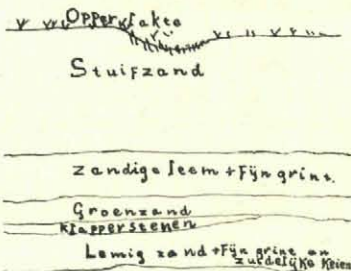 Oppervlakte
Stuifzand
zandige leem + Fÿn grint.
Groenzand
Klapperstenen
Lemig zand + Fÿn grint en
zuidelÿke Keien